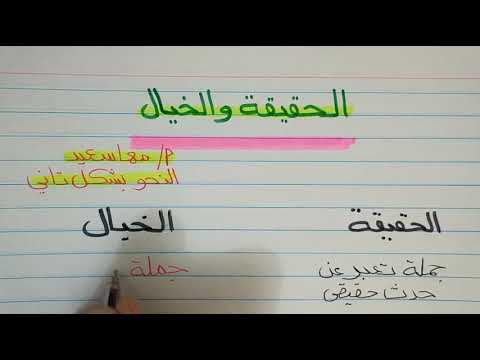 الحقيقة والخيال
م/ مها سعيد
النحو بشكل تاني
الحقيقة
الخيال
جملة تعبر عن
حدث حقيقى
جملة